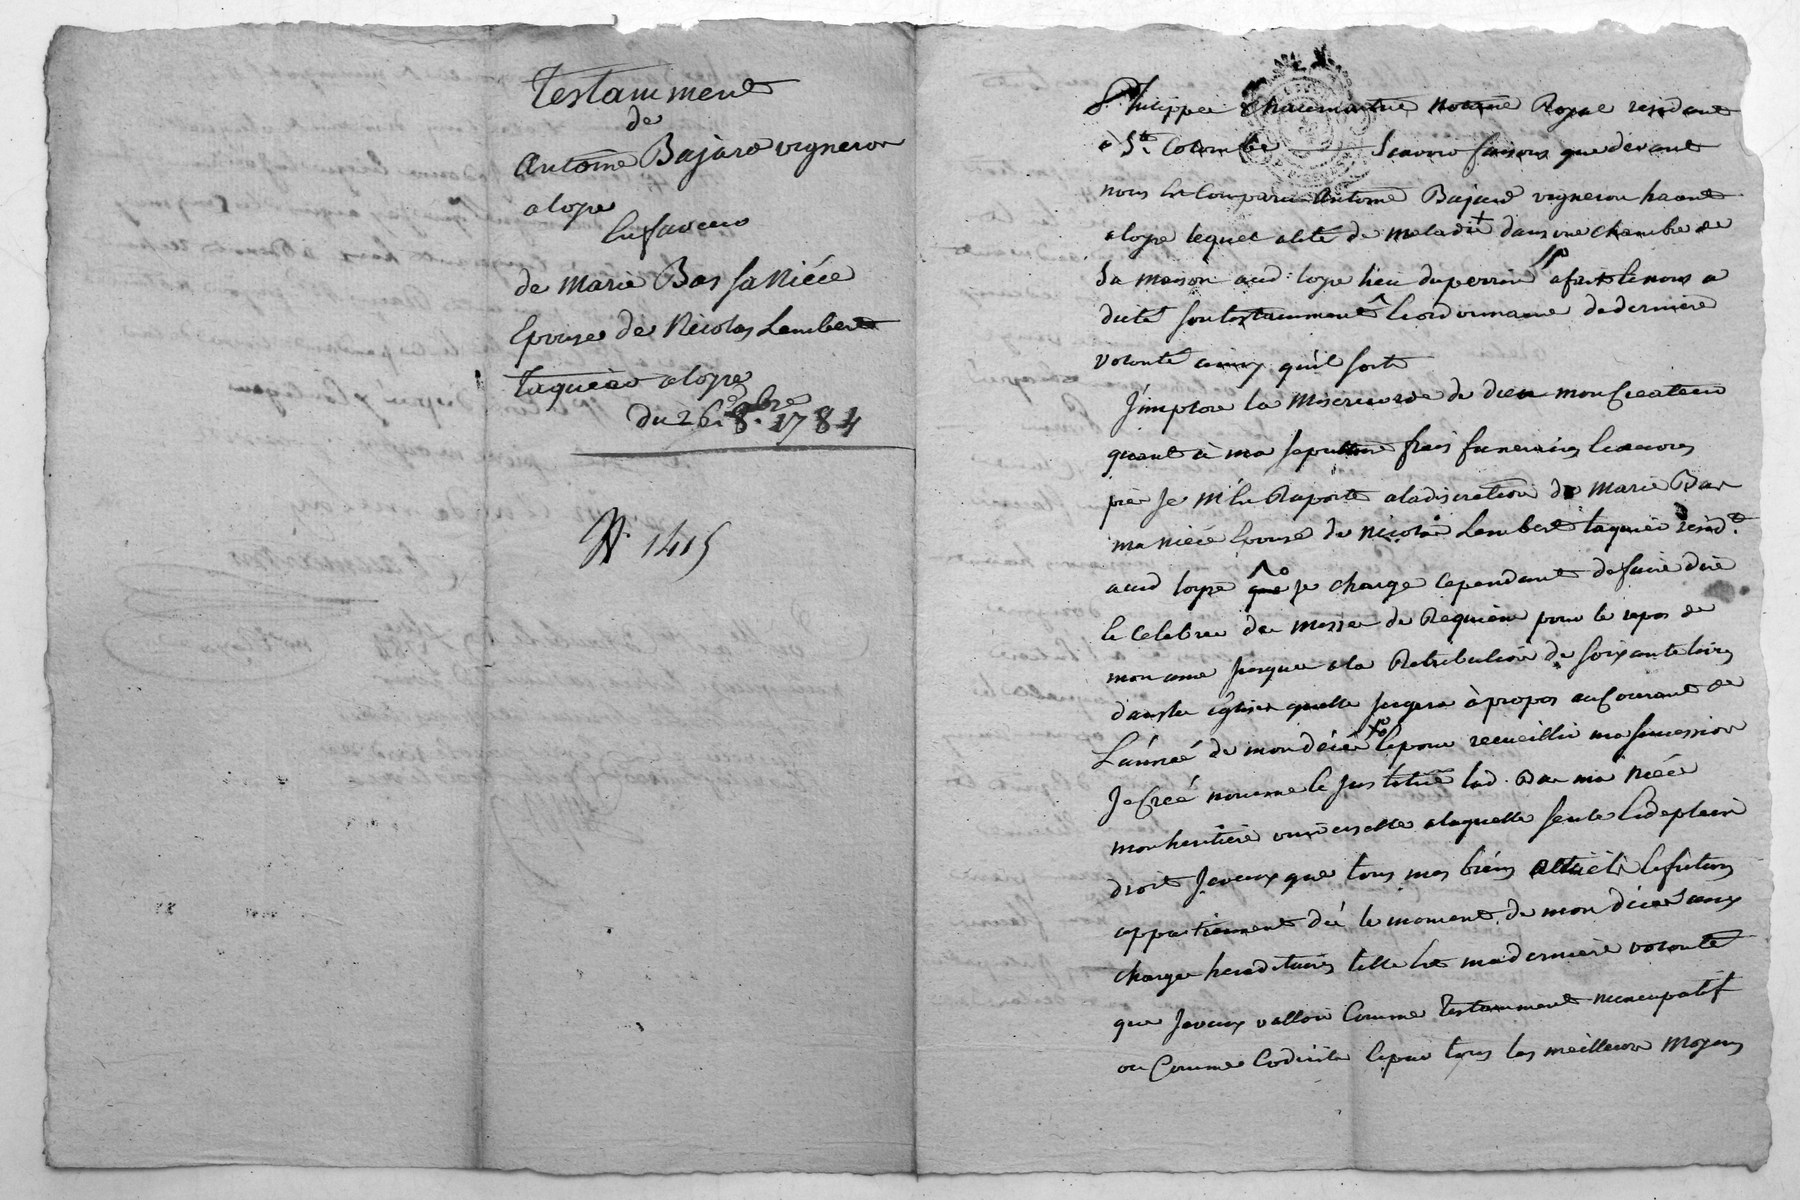 Testamment
de
Antoine Bajard vigneron
a loyre
En faveur
de Marie Bas sa Niéce
Epouse de Nicolas Lambert
taquier a loyre
du 26. 8.bre 1784
N. 1415
Philippe Chaumartin notaire Royal residant
a S.te Colombe Scavoir faisons que devant
nous Est Comparu Antoine Bajard vigneron ha ant
a loyre lequel alité de maladie dans une chambre de
sa maison aud: loyre lieu du perrin a fait Et nous a
dicté son testamment Et ordonnance de derniere
volonté ainsy qu'il sort
J'implore la Misericorde de dieu mon Createur
quant à ma sepulture frais funeraires Et œuvres
pies Je m'En Raporte a la discretion de Marie Bas
ma niéce Epouse de Nicolas Lambert taquier resid.t
aud loyre que je charge cependant de faire dire
Et celebrer des messes de Requiem pour le repos de
mon ame jusques a la Retribution de soixante livres
dans les Eglises quelle jugera à propos au Courant de
L'année de mon décès Et pour recueillir ma succession
Je Créé nomme Et Institue lad. Bas ma Niéce
mon heritiere universelle a laquelle seule Et de plein
droit Je veux que tous mes biens actuels Et futurs
appartiennent dés le moment de mon décès aux
charges hereditaires telle Est ma derniere volonté
que Je veux valloir Comme testamment nuncupatif
ou Comme Codicile Et par tous les meilleurs Moyens